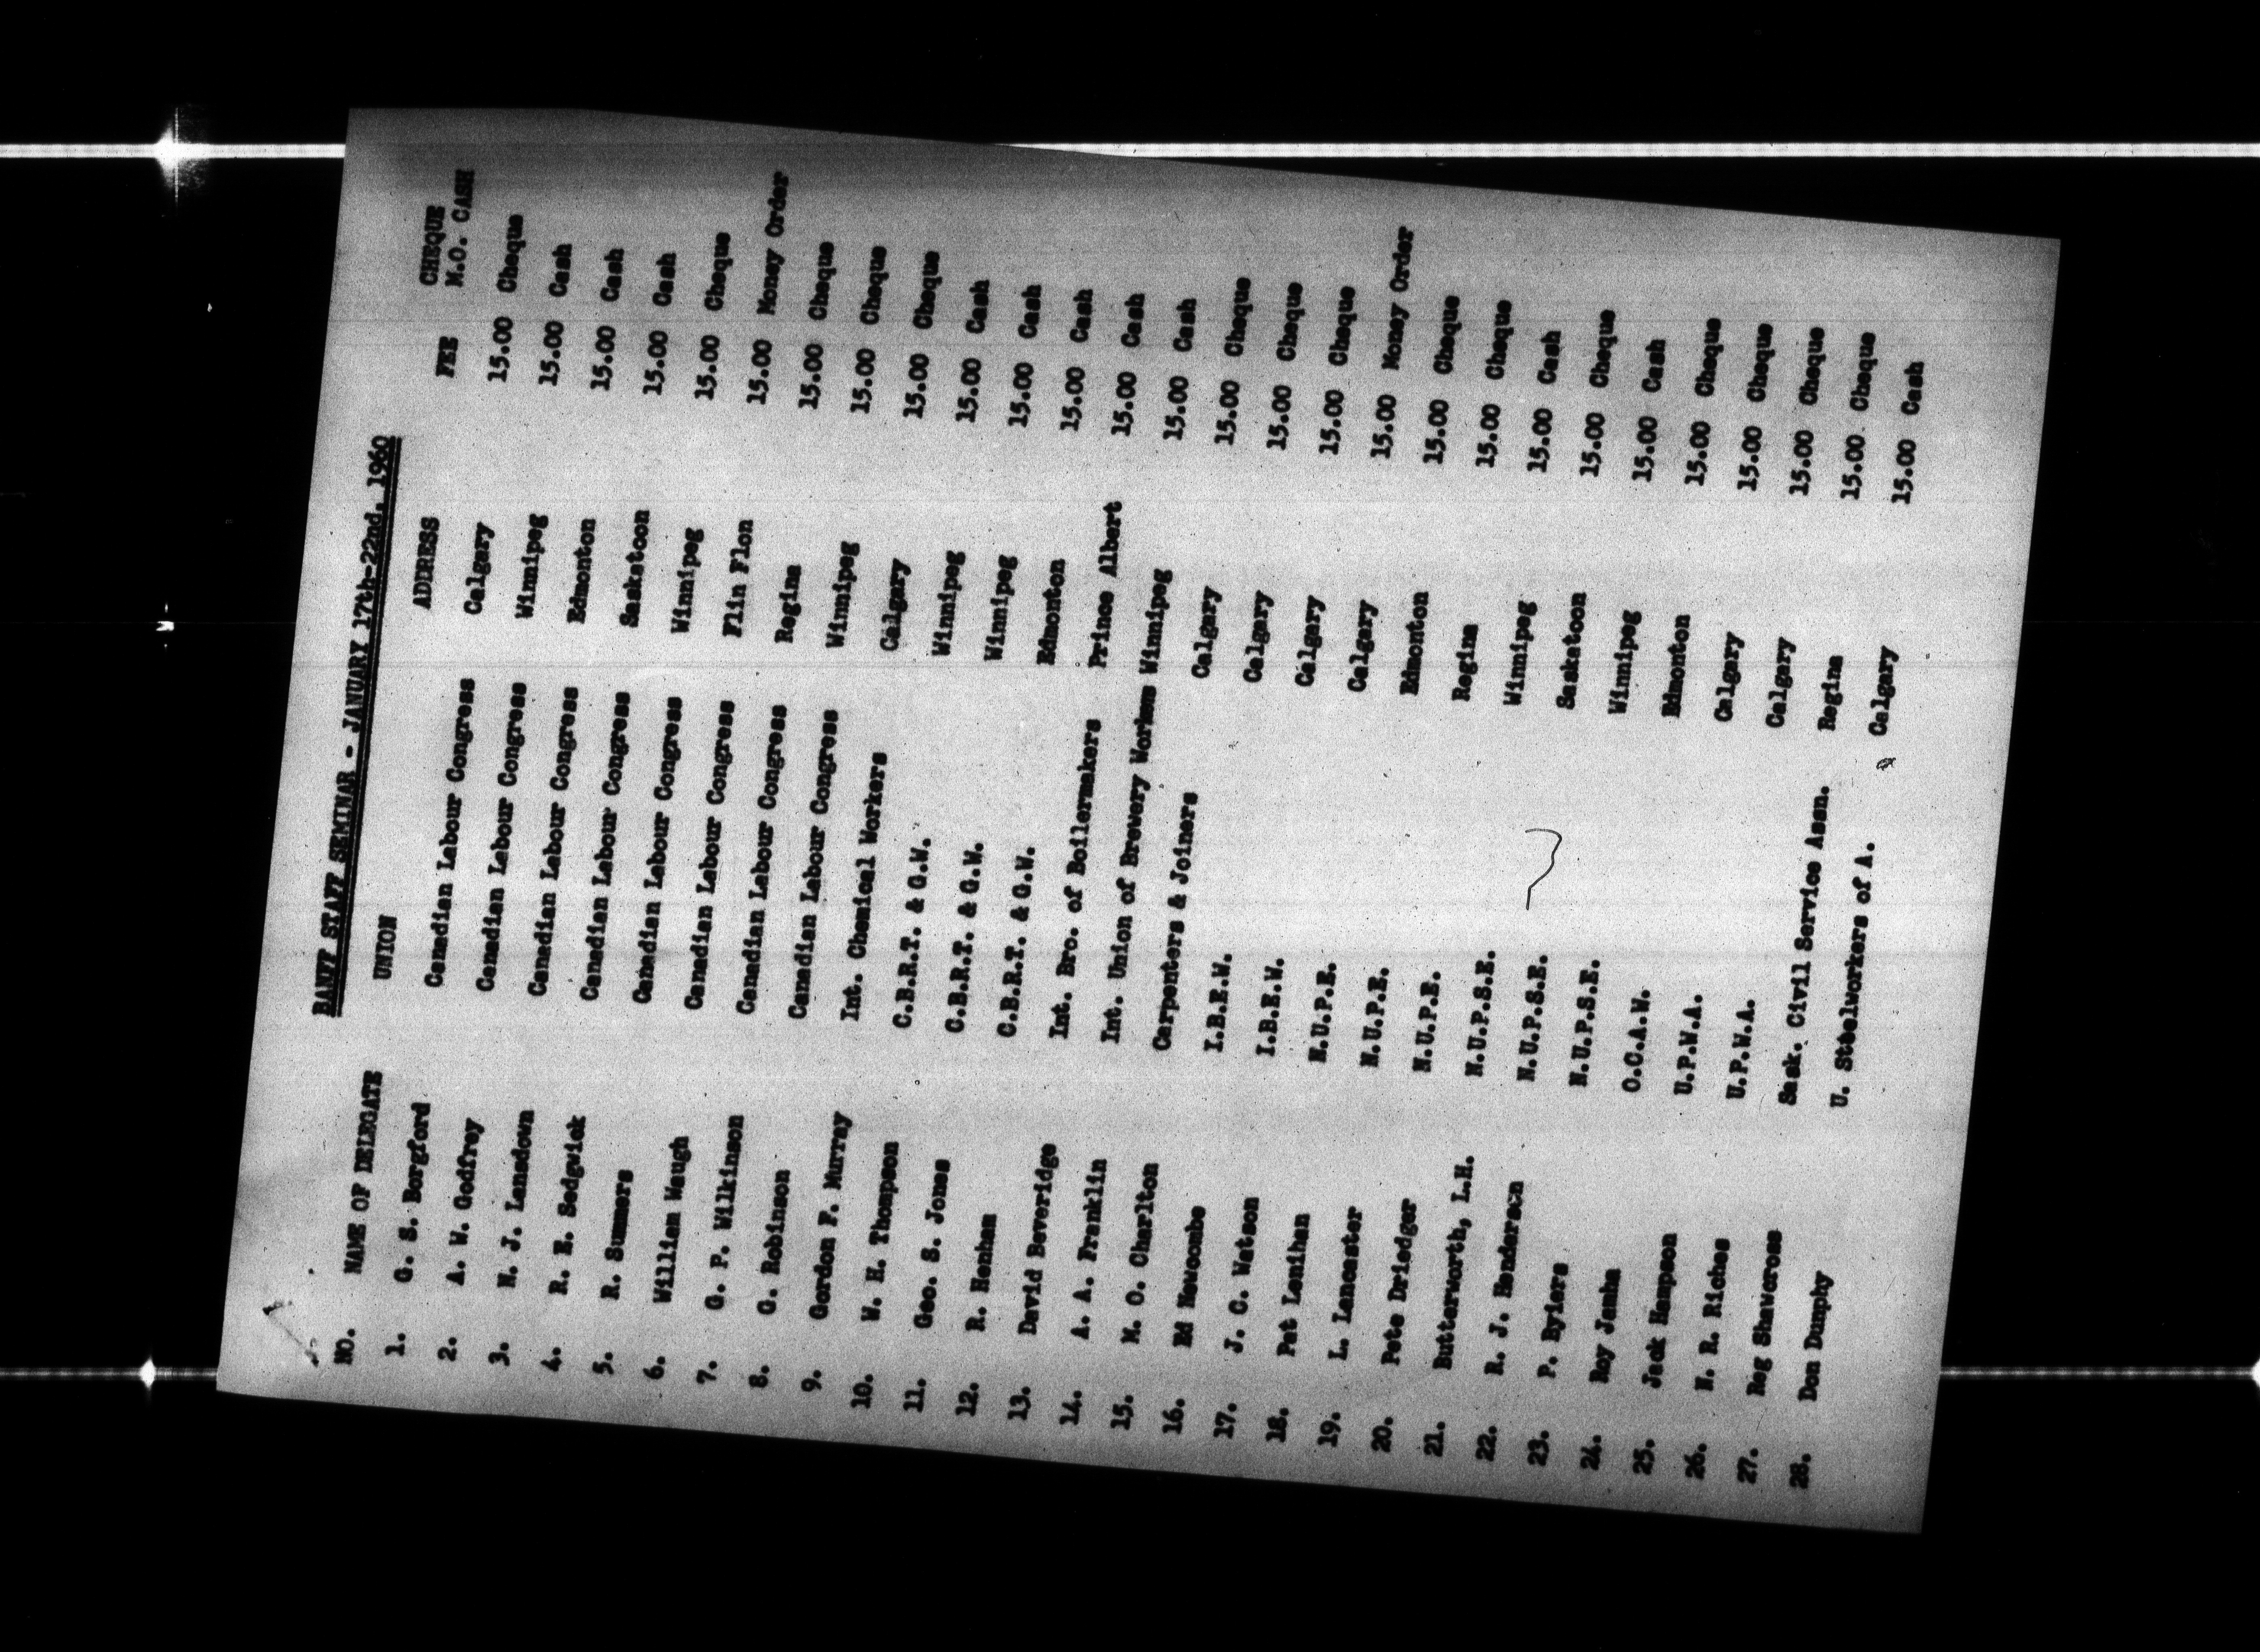 BANFF STAFF SEMINAR - JANUARY 17th-22nd, 1960
CHEQUE
NO. NAME OF DELEGATE UNION ADDRESS FEE M.O. CASH
1. G. S. Borgford Canadian Labour Congress Calgary 15.00 Cheque
2. A. W. Godfrey Canadian Labour Congress Winnipeg 15.00 Cash
3. N. J. Lansdown Canadian Labour Congress Edmonton 15.00 Cash
4. R. E. Sedgwick Canadian Labour Congress Saskatoon 15.00 Cash
5. R. Summers Canadian Labour Congress Winnipeg 15.00 Cheque
6. William Waugh Canadian Labour Congress Flin Flon 15.00 Money Order
7. G. P. Wilkinson Canadian Labour Congress Regina 15.00 Cheque
8. G. Robinson Canadian Labour Congress Winnipeg 15.00 Cheque
9. Gordon F. Murray Int. Chemical Workers Calgary 15.00 Cheque
10. W. H. Thompson C.B.R.T. & G.W. Winnipeg 15.00 Cash
11. Geo. S. Jones C.B.R.T. & G.W. Winnipeg 15.00 Cash
12. R. Henham C.B.R.T. & G.W. Edmonton 15.00 Cash
13. David Beveridge Int. Bro. of Boilermakers Prince Albert 15.00 Cash
14. A. A. Franklin Int. Union of Brewery Workmen Winnipeg 15.00 Cash
15. M. O. Charlton Carpenters & Joiners Calgary 15.00 Cheque
16. Ed Newcombe I.B.E.W. Calgary 15.00 Cheque
17. J. C. Watson I.B.E.W. Calgary 15.00 Cheque
18. Pat Lenihan N.U.P.E. Calgary 15.00 Money Order
19. L. Lancaster N.U.P.E. Edmonton 15.00 Cheque
20. Pete Driedger N.U.P.E. Regina 15.00 Cheque
21. Butterworth, L.H. N.U.P.S.E. Winnipeg 15.00 Cash
22. R. J. Henderson N.U.P.S.E. Saskatoon 15.00 Cheque
23. P. Bylers N.U.P.S.E. Winnipeg 15.00 Cash
24. Roy Jamha O.C.A.W. Edmonton 15.00 Cheque
25. Jack Hampson U.P.W.A. Calgary 15.00 Cheque
26. N. R. Riches U.P.W.A. Calgary 15.00 Cheque
27. Reg Shawcross Sask. Civil Service Assn. Regina 15.00 Cheque
28. Don Dunphy U. Steelworkers of A. Calgary 15.00 Cash